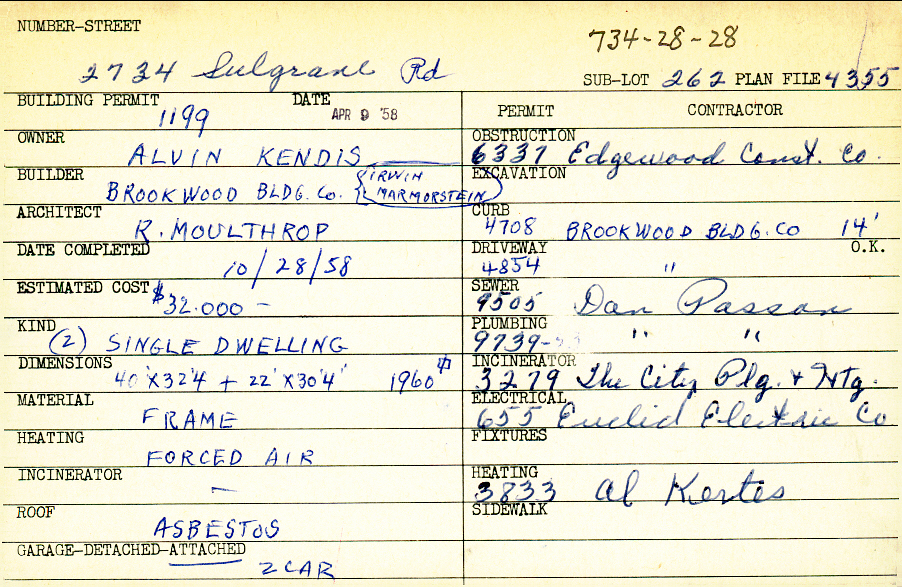 NUMBER-STREET
734-28-28
2734 Sulgrave Rd
SUB-LOT 262 PLAN FILE 4355
BUILDING PERMIT 1199 DATE APR 9 '58
PERMIT CONTRACTOR
OWNER ALVIN KENDIS
OBSTRUCTION 6337 Edgewood Const. Co.
BUILDER BROOKWOOD BLDG. Co. {IRWIN MARMORSTEIN}
EXCAVATION
ARCHITECT R. MOULTHROP
CURB 4708 BROOKWOOD BLDG. CO 14'
DATE COMPLETED 10/28/58
DRIVEWAY 4854 " O.K.
ESTIMATED COST $32.000 –
SEWER 9505 Dan Passon
KIND (2) SINGLE DWELLING
PLUMBING 9739- " "
DIMENSIONS 40'X32'4 + 22'X30'4" 1960
INCINERATOR 3279 The City Plg. & Htg.
MATERIAL FRAME
ELECTRICAL 655 Euclid Electric Co
HEATING FORCED AIR
FIXTURES
INCINERATOR –
HEATING 3833 Al Kertes
ROOF ASBESTOS
SIDEWALK
GARAGE-DETACHED-ATTACHED 2 CAR